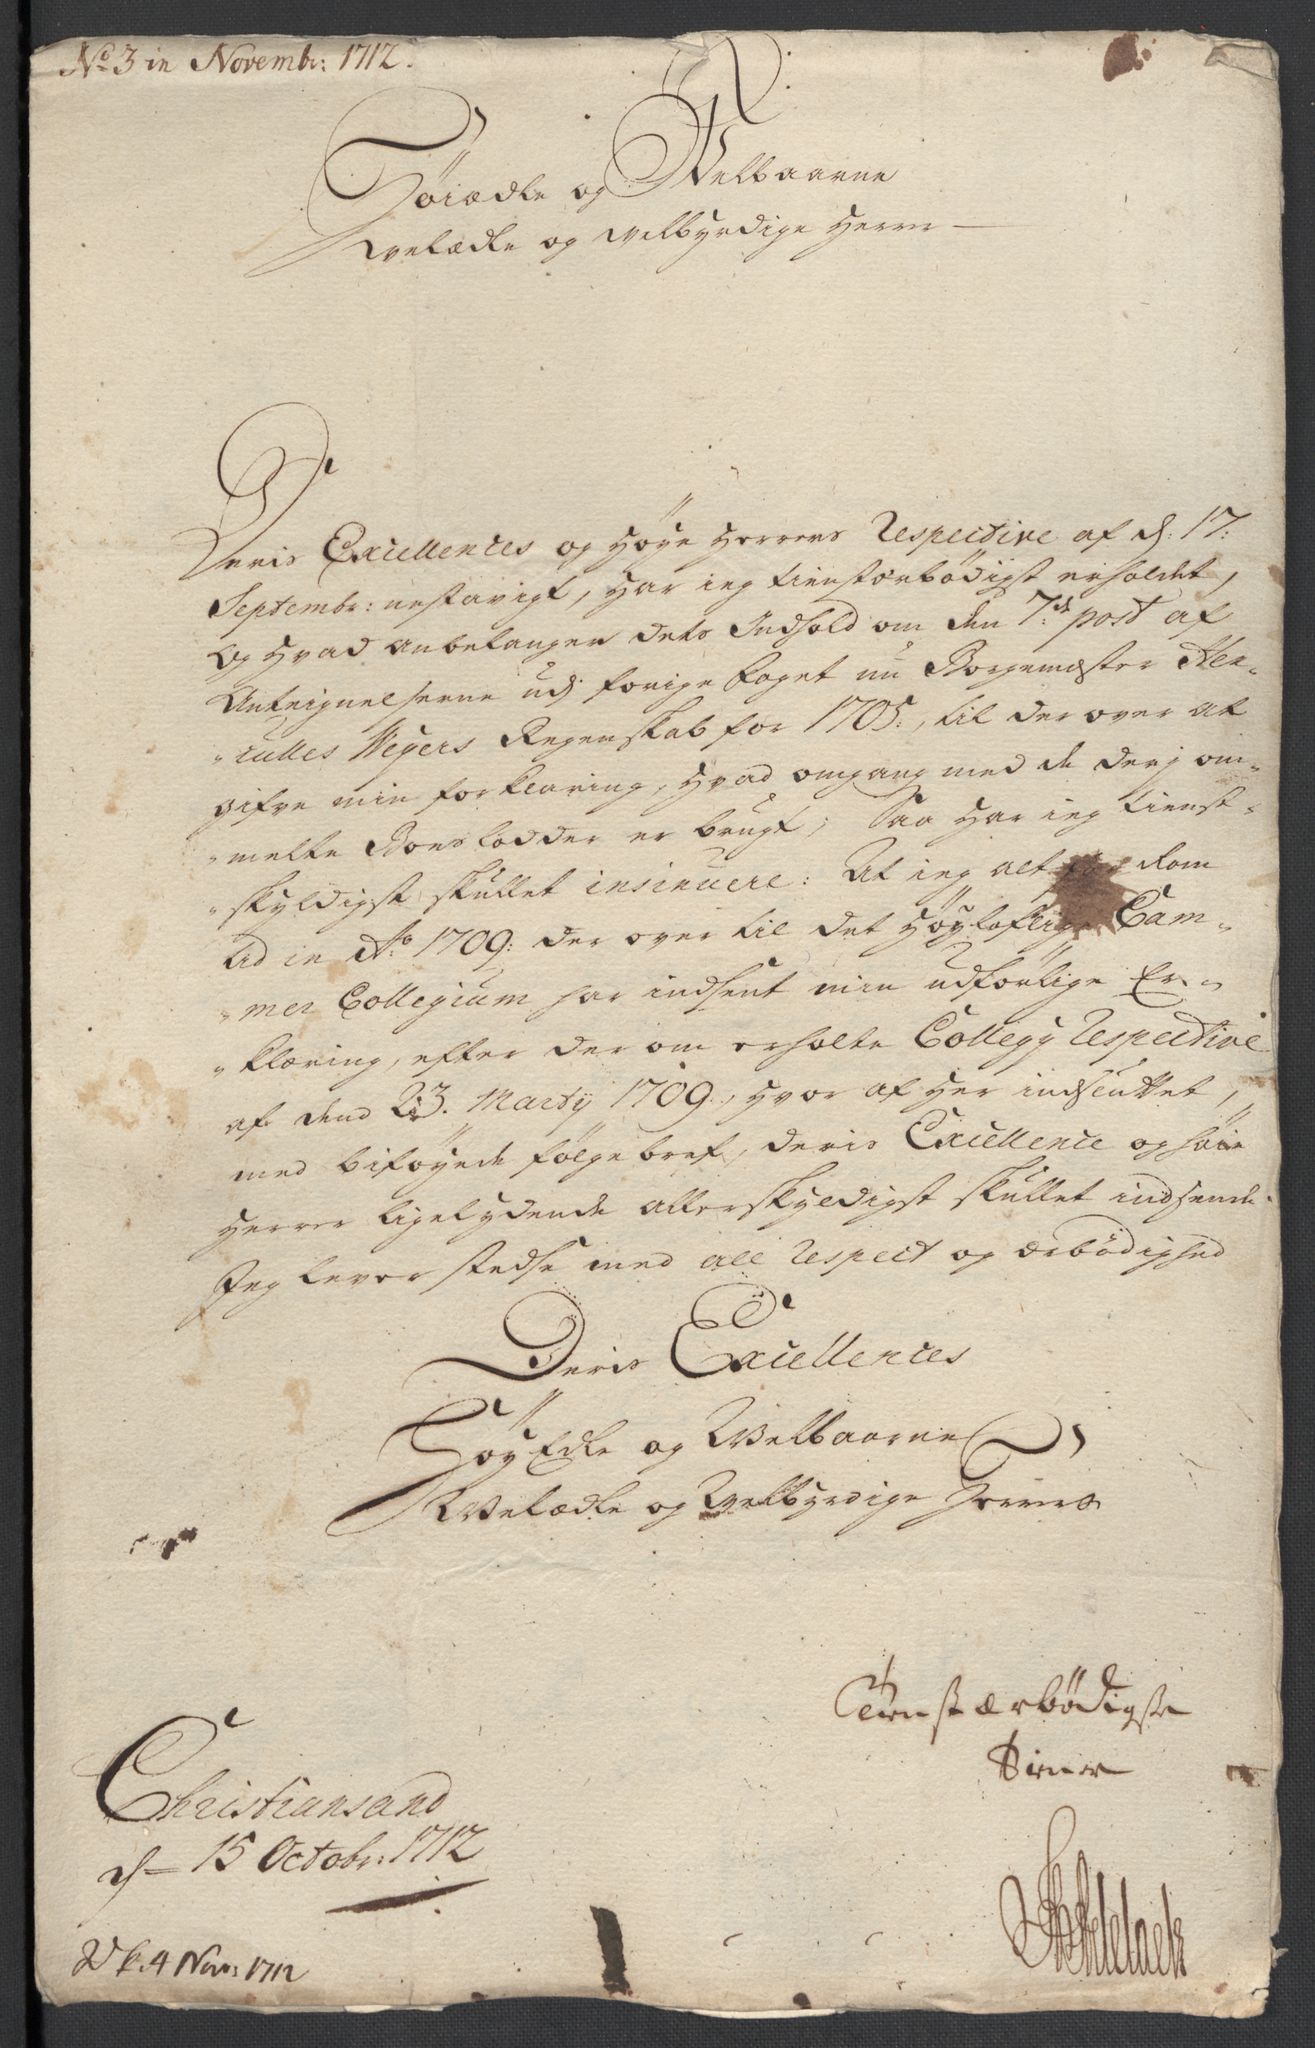 No 3 in Novembr: 1712.
Høiædle og Welbaarne
Welædle og Welbyrdige Herrer
Deris Excellences og Høye Herrers Respective af d: 17:
Septembr: nestavigt, har ieg tienstærbødigst erholdet,
Og hvad anbelanger dets Indhold om den 7de post af
Antegnelserne udj forige foget nu Borgemester Her-
culles Wejers Regenskab for 1705, til der over at
gifve min forklaring, hvad omgang med de derj om-
melte Boeslodder er brugt; Saa har ieg tienst-
skyldigst skullet insinuere: At ieg alt for dom
tid in Ao 1709: der over til det Høyloflige Cam-
mer Collegium har indsent min udførlige Er-
klæring, efter der om erholte Collegij Respective
af dend 23. Martij 1709, hvor af her indsluttet,
med biføyede følgebref, deris Excellence og høie
Herrer ligelydende allerskyldigst skullet indsende.
Jeg lever stedse med all respect og ærbødighed
Deris Excellences
Høy Edle og Welbaarne
Welædle og Welbyrdige Herrers
Tienstærbødigste
tiener
Christiansand
d 15 Octobr: 1712
4 Nov: 1712